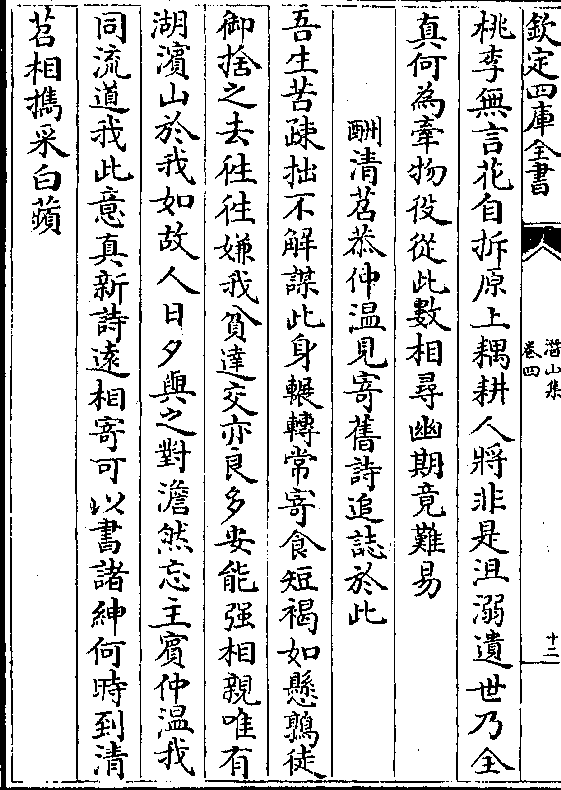 欽定四庫全書
潛山集
卷四
十二
桃李無言花自拆原上耦耕人將非是沮溺遺世乃全
真何為牽物役從此數相尋幽期竟難易
酬清苕恭仲温見寄舊詩追誌於此
吾生苦疎拙不解謀此身輾轉常寄食短褐如懸鶉徒
御捨之去徃徃嫌我貧達交亦良多安能强相親唯有
湖濱山於我如故人日夕與之對澹然忘主賓仲温我
同流道我此意真新詩遠相寄可以書諸紳何時到清
苕相攜采白蘋